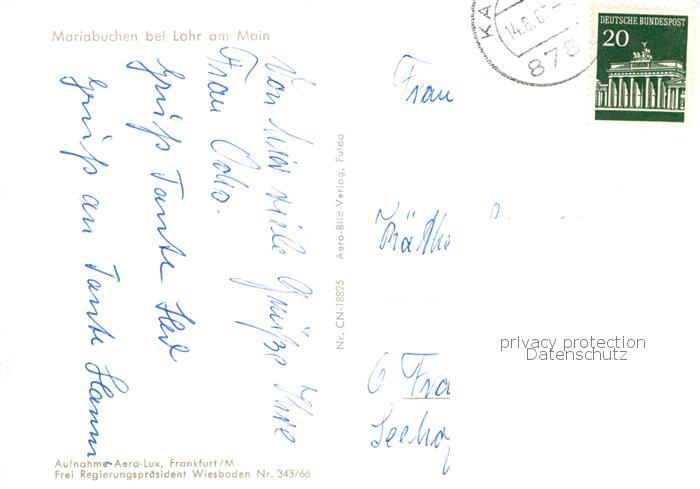 Mariabuchen bei Lohr am Main
Von hier viele Grüße Ihre
Frau
Gruß Tante
Gruß an Tante Hanni
Aufnahme Aero-Lux, Frankfurt/M
Frei Regierungspräsident Wiesbaden Nr. 343/66
Nr. CN-18825 Aero-Bild-Verlag, Fulda
KA
14.8.67
878
DEUTSCHE BUNDESPOST
20
Frau
Käthe
6 Fra
Seeho
privacy protection
Datenschutz